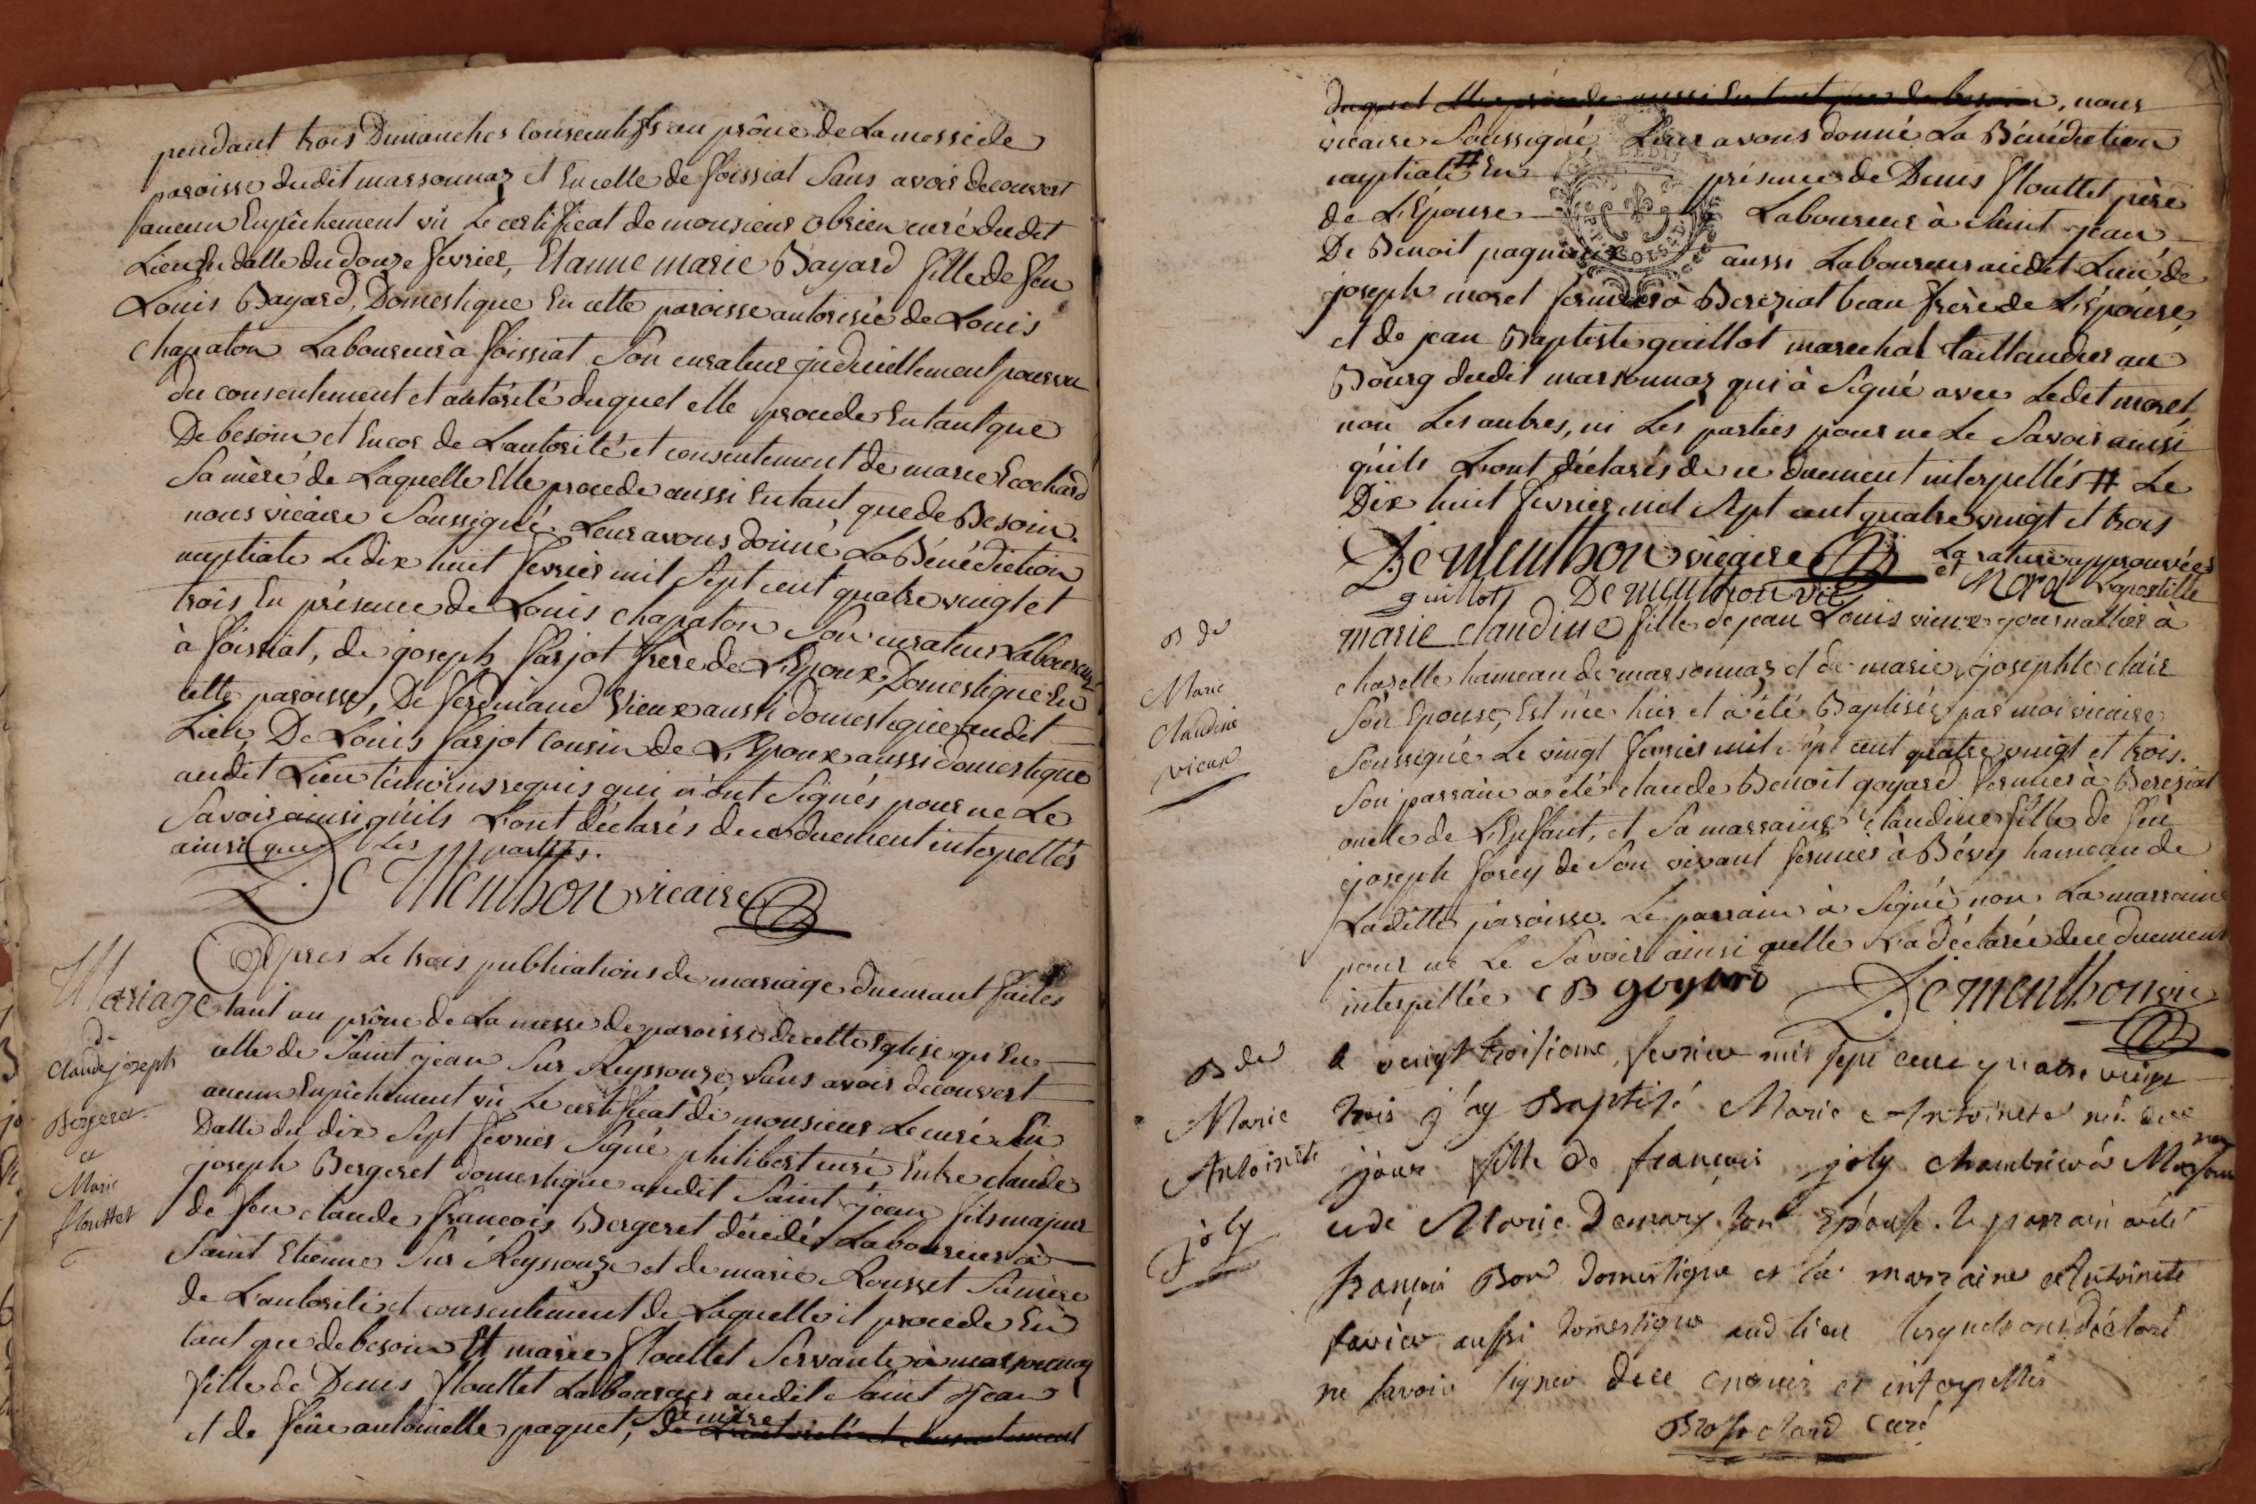 pendant trois Dimanches consecutifs au prône de La messe de
paroisse dudit marsonnaz et En celle de foissiat Sans avoir decouvert
aucun Enpêchement vû Le certificat de monsieur obrien curé dudit
Lieu En datte du douze fevrier, Et anne marie Bayard fille de feu
Louis Bayard, Domestique En cette paroisse autorisée de Louis
chapaton Laboureur à foissiat Son curateur judiciellement pourvu
du consentement et autorité duquel elle procede En tant que
De besoin et Encor de L'autorité et consentement de marie Ecochard
Sa mère de Laquelle Elle procede aussi En tant que de Besoin
nous vicaire Soussigné Leur avons donné La Bénédiction
nuptiale Le dix huit fevrier mil Sept cent quatre vingt et
trois En présence de Louis chapaton Son curateur Laboureur
à foissiat, de joseph farjot frère de L'Epoux Domestique En
cette paroisse, De ferdinand vieux aussi domestique audit
Lieu, De Louis farjot cousin de L'Epoux aussi domestique
audit Lieu témoins requis qui n'ont Signés pour ne Le
Savoir ainsi qu'ils L'ont déclarés de ce duement interpellés
ainsi que Les parties.
De Menthon vicaire
Mariage
de
Claude joseph
Bergeret
et
Marie
flouttet
Apres Le trois publications de mariage duemant faites
tant au prône de La messe de paroisse de cette Eglise qu'En
celle de Saint jean Sur Reyssouze, Sans avoir decouvert
aucun Enpêchement vû Le certificat de monsieur Le curé En
Datte du dix Sept fevrier Signé philibert curé Entre claude
joseph Bergeret domestique audit Saint jean fils majeur
de feu claude françois Bergeret décédé Laboureur à
Saint Etienne Sur Reyssouze et de marie Rousset Sa mère
de L'autorité et consentement de Laquelle il procede En
tant que de besoin Et marie flouttet Servante à marsonnaz
fille de Denis flouttet Laboureur audit Saint jean
et de feue antoinette paquet, Sa mère de L'autorité et consentement
duquel Elle procede aussi En tant que de besoin, nous
vicaire Soussigné, Leur avons donné La Bénédiction
nuptiale # En présence de Denis flouttet père
de L'Epouse Laboureur à Saint jean
De Benoit aussi Laboureur audit Lieu de
joseph moret fermier à Bereziat beau frère de L'Epouse,
et de jean Baptiste guillot marechal taillandier au
Bourg dudit marsonnaz qui à Signé avec Ledit moret,
non Les autres, ni Les parties pour ne Le Savoir ainsi
qu'ils L'ont déclarés de ce duement interpellés # Le
Dix huit fevrier mil Sept cent quatre vingt et trois
De Menthon vicaire La rature approuvée
et L'apostille
guillot De Menthon vic Moret
B de
Marie
Claudine
vieux
marie claudine fille de jean Louis vieux journallier à
chazelle hameau de marsonnaz et de marie josephte clair
Son Epouse, Est née hier et à été Baptisée par moi vicaire
Soussigné Le vingt fevrier mil Sept cent quatre vingt et trois.
Son parrain a été claude Benoit goyard fermier à Bereziat
oncle de L'Enfant, et Sa marraine claudine fille de feu
joseph forey de Son vivant fermier à Bévey hameau de
Laditte paroisse. Le parrain à Signé non La marraine
pour ne Le Savoir ainsi quelle L'a déclarée de ce duement
interpellée C B goyard De Menthon vic
B de
Marie
Antoinete
joly
Le vingt troisieme fevrier mil sept cent quatre vingt
trois j'ay Baptisé Marie Antoinete née dece
jour fille de francois joly chambrier à Marsonnaz
et de Marie Demary son Epouse. le parrain a été
francois Bon domestique et la marraine Antoinete
favier aussi domestique aud lieu lesquels ont déclaré
ne savoir signer dece enquis et interpellés
Brossard Curé